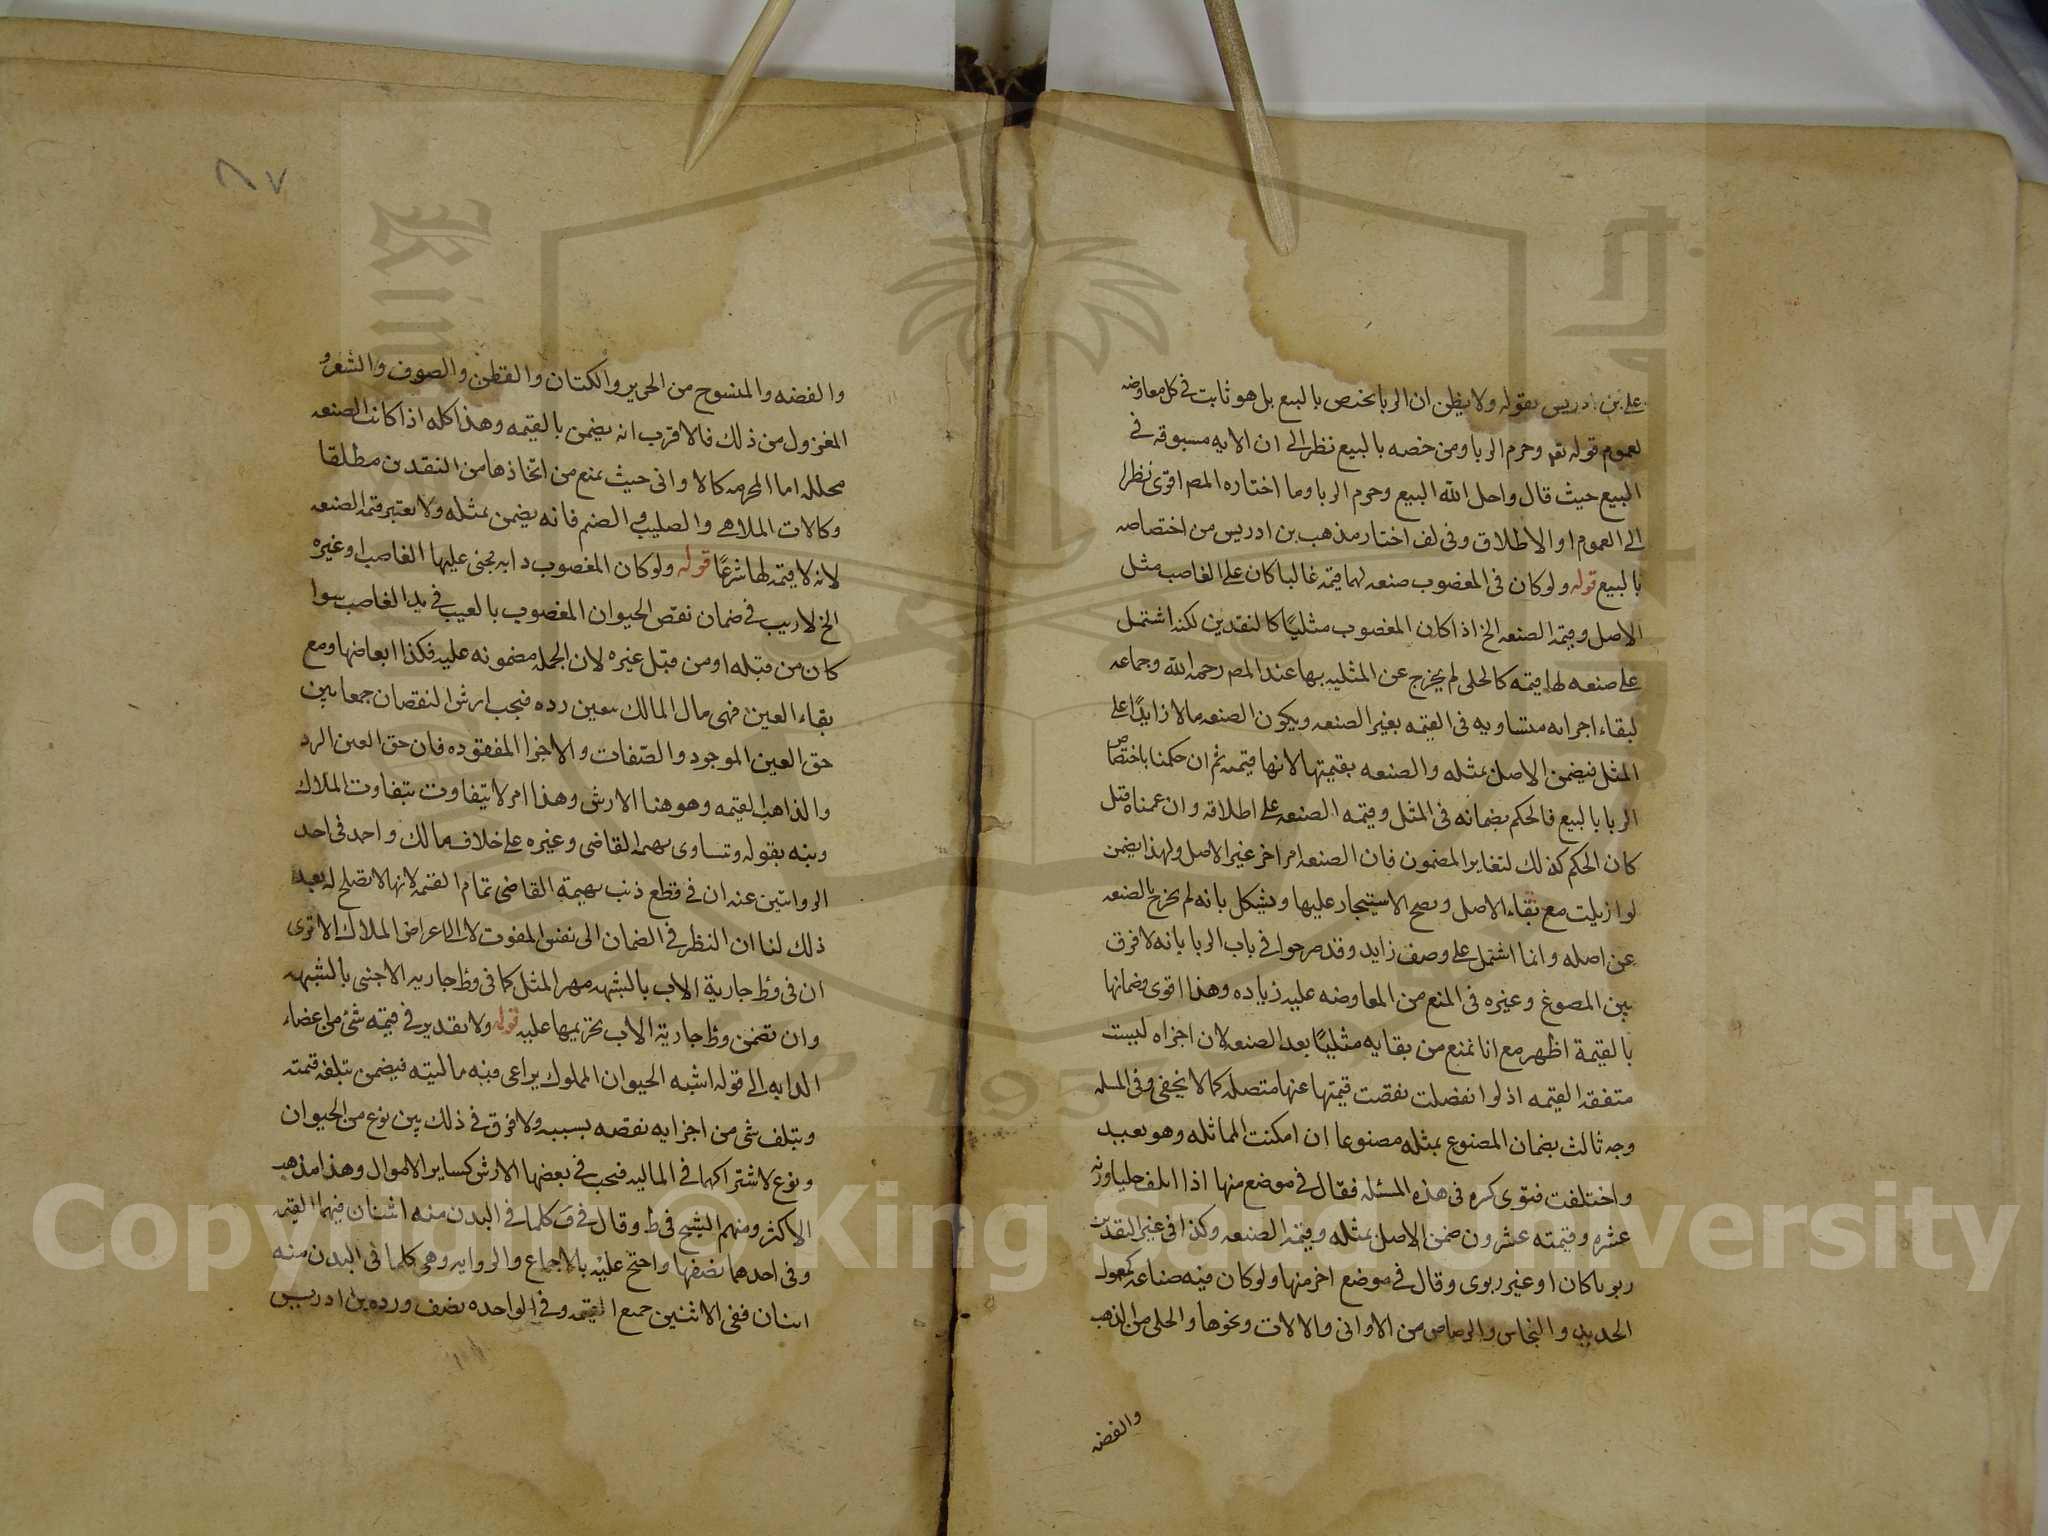 على بن ادريس بقوله ولا يظن ان الربا يختص بالبيع بل هو ثابت في كل معاوضه
لعموم قوله تعـ وحرم الربا ومن خصه بالبيع نظر الى ان الايه مسبوقه في
البيع حيث قال واحل الله البيع وحرم الربا وما اختاره المص اقوى نظرا
الى العموم او الاطلاق وفى لف اختار مذهب بن ادريس من اختصاصه
بالبيع قوله ولو كان فى المغضوب صنعه لها قيمه غالبا كان على الغاصب مثل
الاصل وقيمه الصنعه الخ اذا كان المغصوب مثليًا كالنقدين لكنه اشتمل
على صنعه لها قيمه كالحلى لم يخرج عن المثليه بها عند المص رحمه الله وجماعه
لبقاء اجزايه متساويه فى القيمه بغير الصنعه ويكون الصنعه مالا زايدًا على
المثل فيضمن الاصل بمثله والصنعه بقيمتها لانها قيمه ثم ان حكمنا باختصاص
الربا بالبيع فالحكم بضمانه فى المثل وقيمه الصنعه على اطلاقه وان عمناه قتل
كان الحكم كذلك لتغاير المضمون فان الصنعه امر اخر غير الاصل ولهذا يضمن
لو ازيلت مع بقاء الاصل ويصح الاستيجار عليها ويشكل بانه لم يخرج بالصنعه
عن اصله وانما اشتمل على وصف زايد وقد صرحوا في باب الربا بانه لا فرق
بين المصوغ وغيره فى المنع من المعاوضه عليه زياده وهذا اقوى وضمانها
بالقيمة اظهر مع انا نمنع من بقايه مثليًا بعد الصنعه لان اجزاه ليست
متفقه القيمه اذ لو انفصلت نقصت قيمتها عنها متصله كما لا يخفى وفى المسله
وجه ثالث بضمان المصنوع بمثله مصنوعا ان امكنت المماثله وهو بعيد
واختلفت فتوى كره فى هذه المسئله فقال في موضع منها اذا اتلف حليا وزنه
عشره وقيمته عشرون ضمن الاصل بمثله وقيمه الصنعه وكذا في غير النقدين
ربويا كان او غير ربوى وقال في موضع اخر منها ولو كان فيه صناعه كمعمول
الحديد والنحاس والرصاص من الاوانى والالات ونحوها والحلى من الذهب
والفضه
٨٧
والفضه والمنسوج من الحرير والكتان والقطن والصوف والشعر و
المغزول من ذلك فالاقرب انه يضمن بالقيمه وهذا كله اذا كانت الصنعه
محلله اما المحرمه كالاوانى حيث يمنع من اتخاذها من النقدين مطلقا
وكالات الملاهى والصليب والصنم فانه يضمن بمثله ولا يعتبر قيمه الصنعه
لانه لا قيمه لها شرعًا قوله ولو كان المغصوب دابه فجنى عليها الغاصب او غيره
الخ لا ريب في ضمان نقص الحيوان المغصوب بالعيب في يد الغاصب سوا
كان من قبله او من قبل غيره لان الجمله مضمونه عليه فكذا ابعاضها ومع
بقاء العين فهى مال المالك يتعين رده فيجب ارش النقصان جمعا بين
حق العين الموجود والصفات والاجزا المفقوده فان حق العين الرد
والذاهب القيمه وهو هنا الارش وهذا امر لا يتفاوت بتفاوت الملاك
ونبه بقوله وتساوى بهيمه القاضى وغيره على خلاف مالك واحد في احد
الروايتين عنه ان في قطع ذنب بهيمة القاضى تمام القيمه لانها لا تصلح له بعد
ذلك لنا ان النظر في الضمان الى نفس المفوت لا الى اعراض الملاك الا ترى
ان فى وطٔ جارية الاب بالشبهه مهر المثل كما فى وطٔ جاريه الاجنبى بالشبهه
وان تضمن وطٔ جارية الاب تحريمها عليه قوله ولا تقدير في قيمه شئ من اعضاء
الدابه الى قوله اشبه الحيوان المملوك يراعى فيه ماليته فيضمن بتلفه قيمته
وبتلف شى من اجزايه نقصه بسببه ولا فرق في ذلك بين نوع من الحيوان
ونوع لاشتراكهما في الماليه فيجب في بعضها الارش كساير الاموال وهذا مذهب
الاكثر ومنهم الشيخ في ط وقال في ف كلما في البدن منه اثنان فيهما القيمه
وفى احدهما نصفها واحتج عليه بالاجماع والروايه وهى كلما فى البدن منه
اثنان ففى الاثنين جميع القيمه وفي الواحده نصف ورده بن ادريس
Copyright © King Saud University
1957